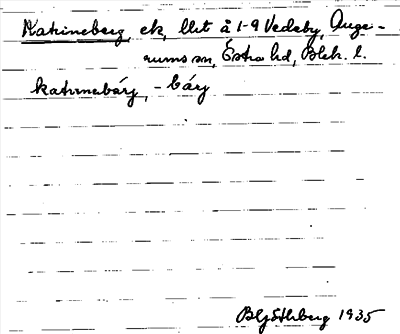 Katrineberg, ek, lht å 1-9 Vedeby, Auge-
rums sn, Östra hd, Blek. l.
katrinebárj, - bárj
1935